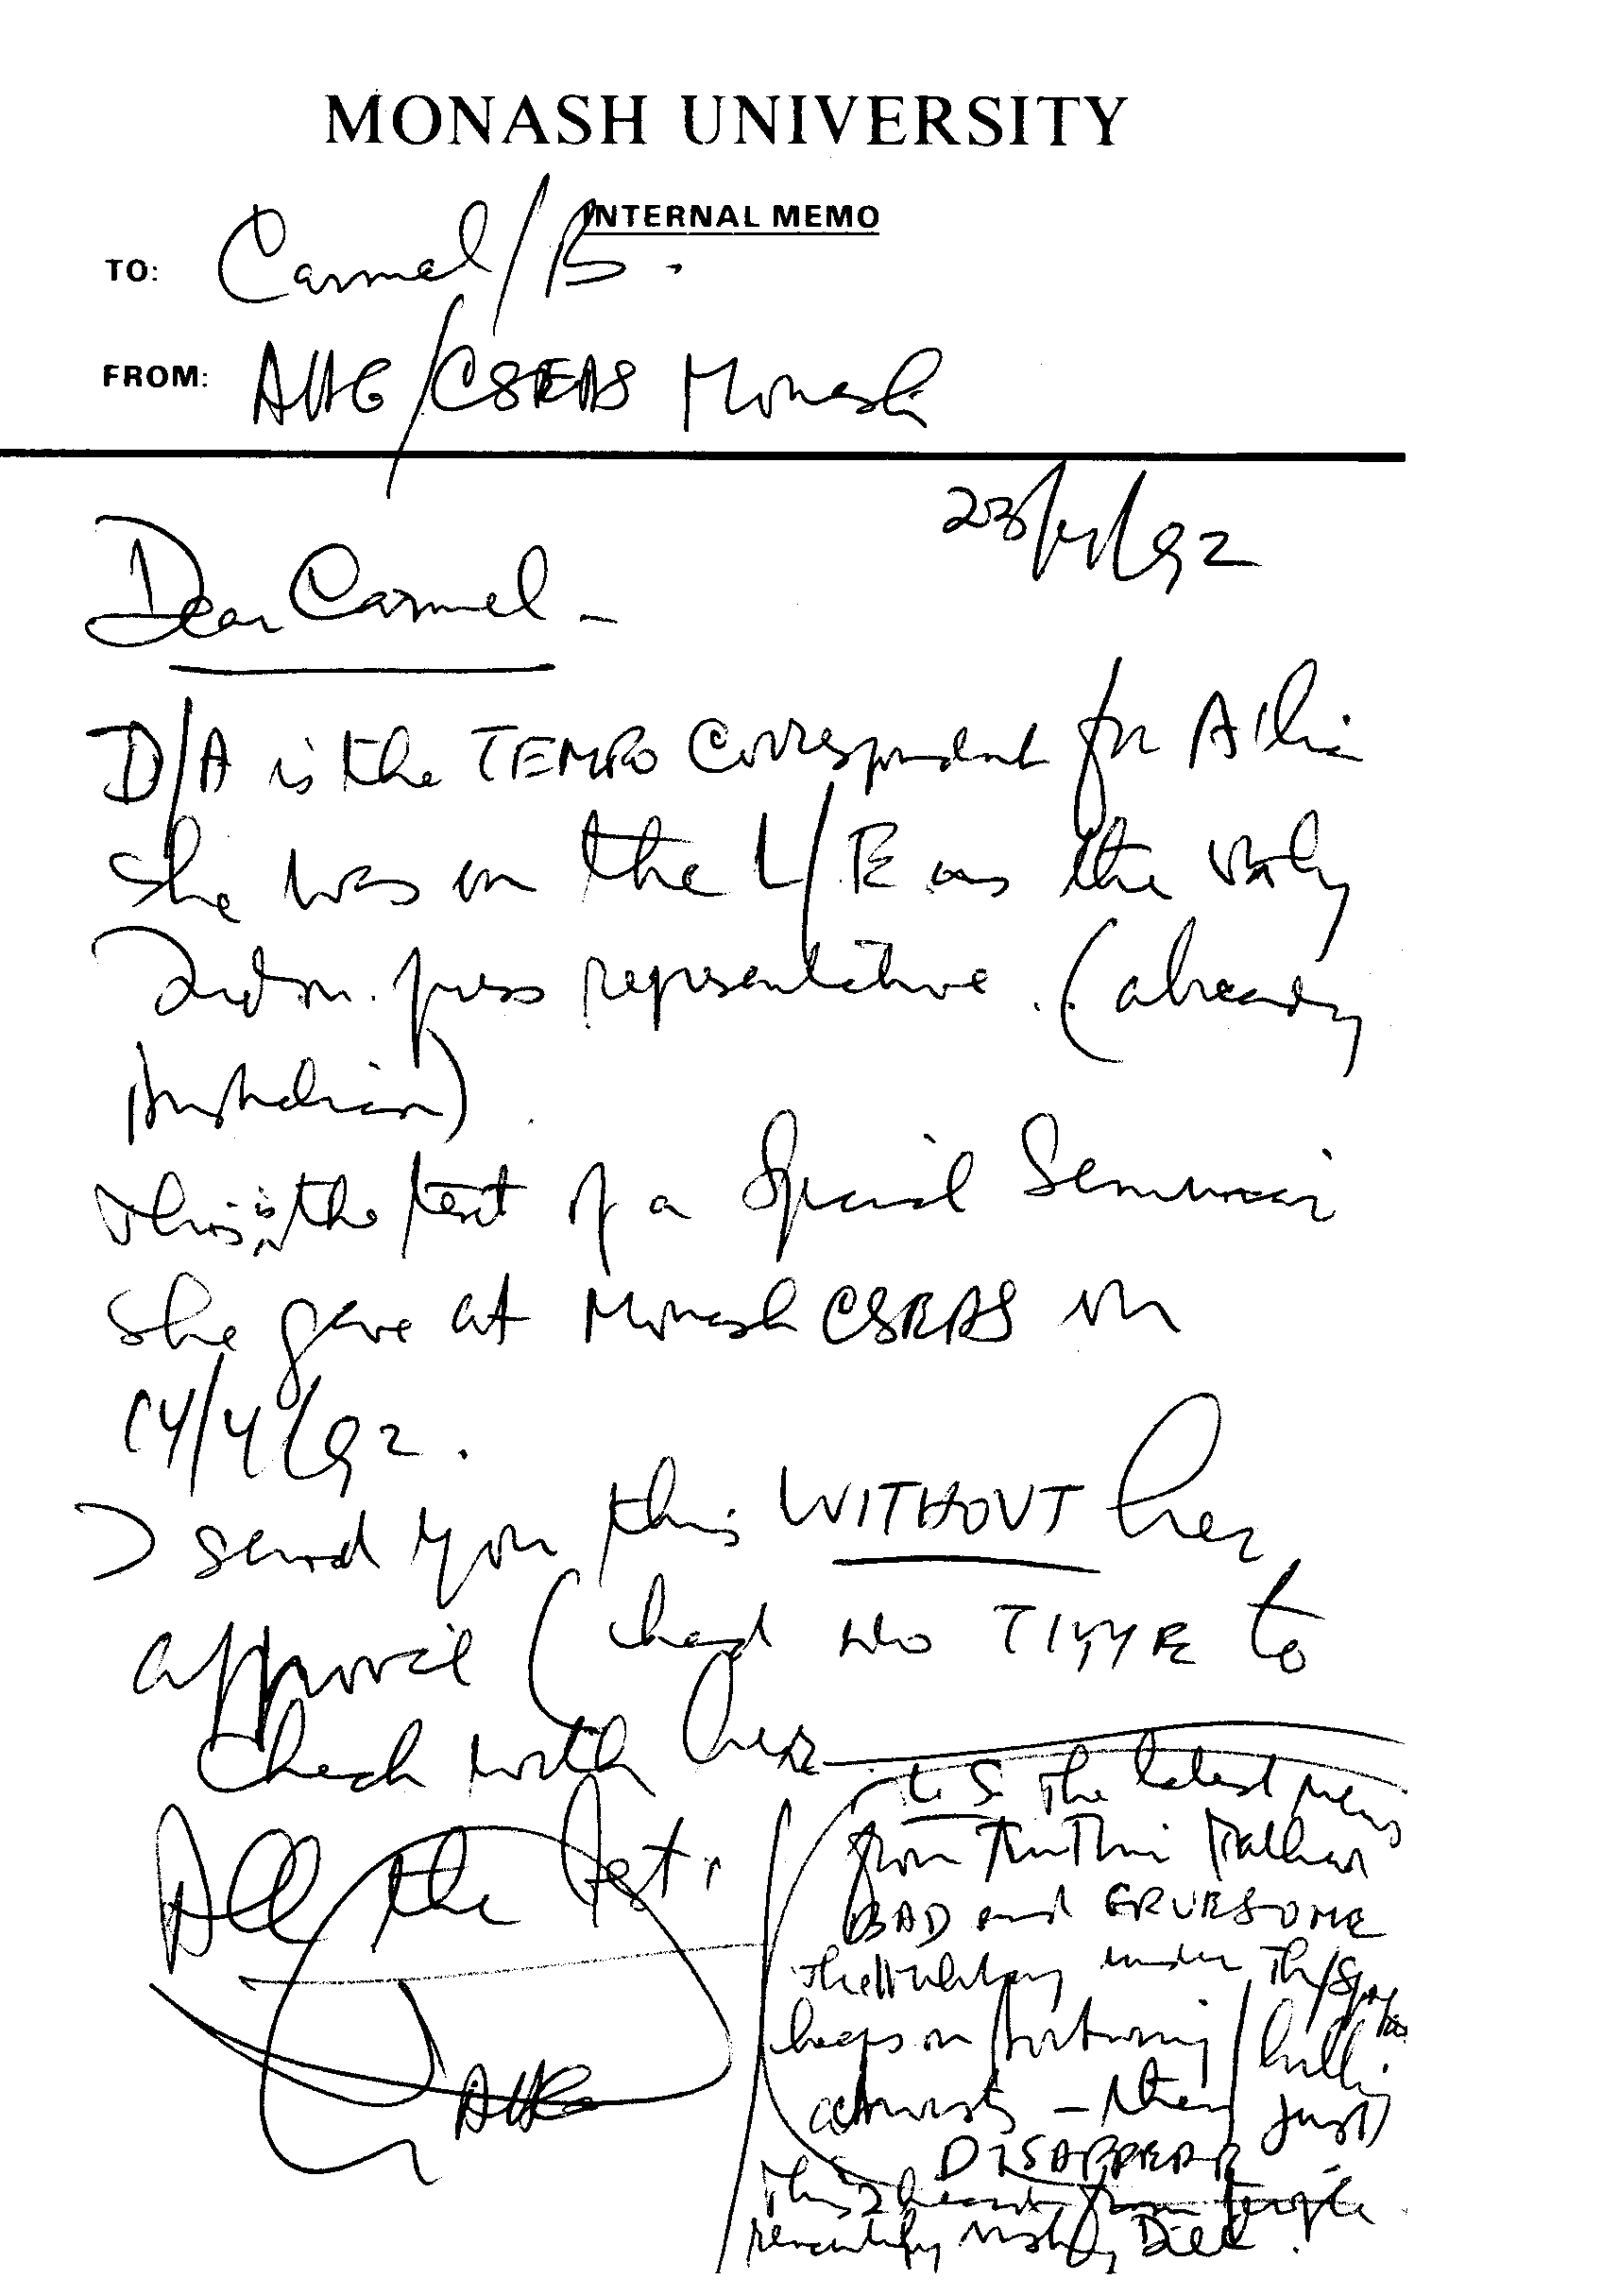 MONASH UNIVERSITY
INTERNAL MEMO
TO: Carmel/B.
FROM: /CSEAS Monash
23/4/92
Dear Carmel -
D/A is the TEMPO Correspondent for A'lia
She was on the L/E as the only
Indon. press representative. (already
Australian)
This is the text of a Special Seminar
she gave at Monash CSEAS on
14/4/92.
I send you this WITHOUT her
approval (had NO TIME to
check with her
All the best,
P.S. The latest news
from Timtim
BAD and GRUESOME
The military under
keeps on torturing/killing
activists - they just
DISAPPEAR
This I heard from people
recently Dili.